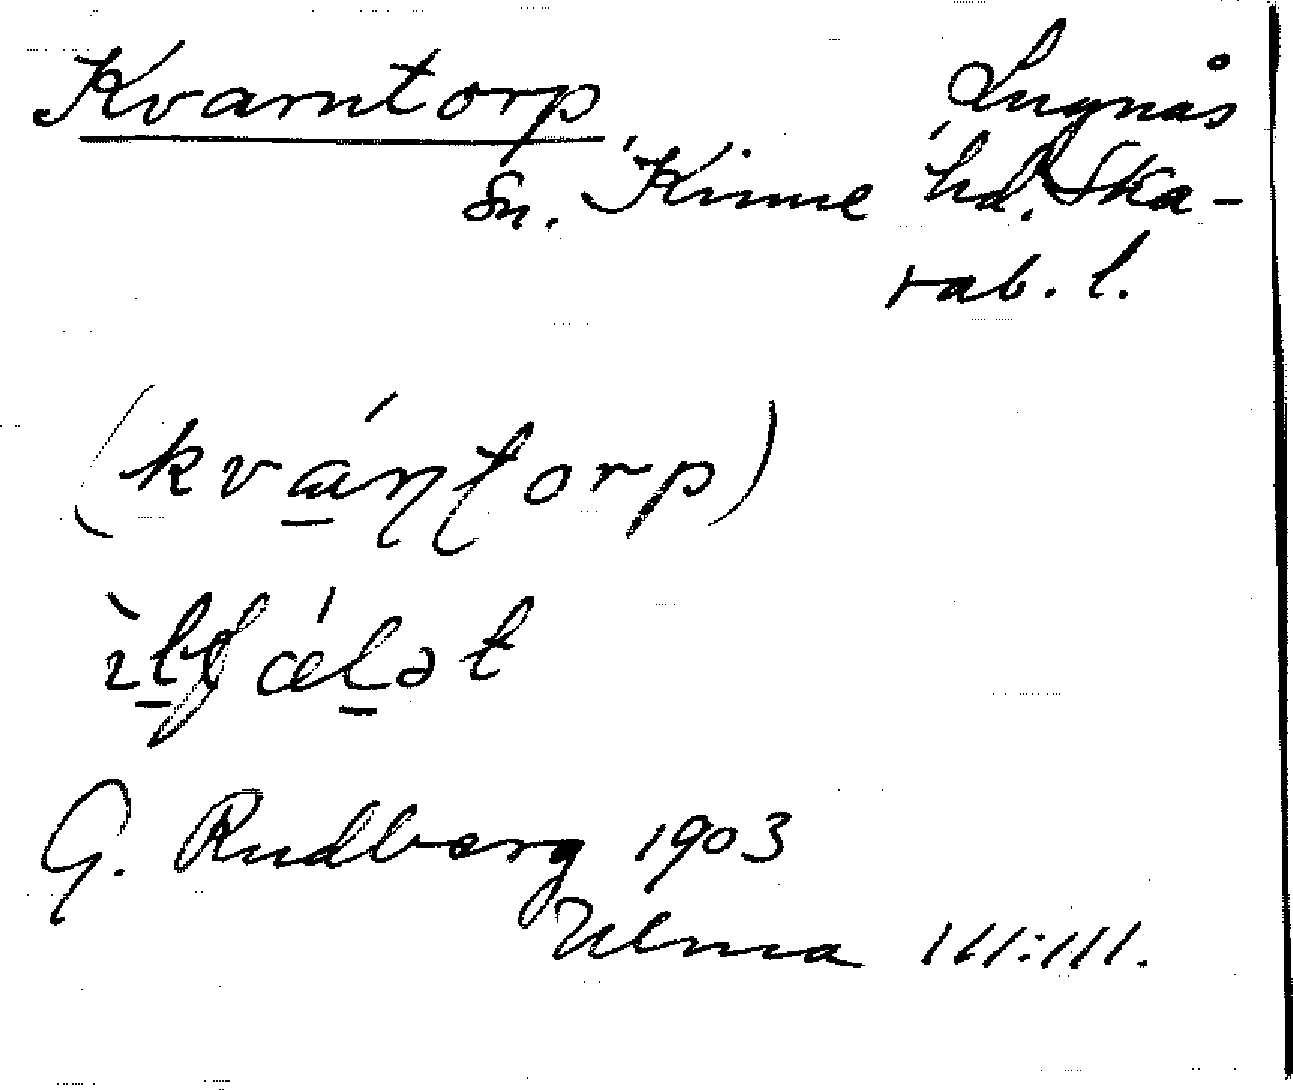 Kvarntorp Lugnås
sn. Kinne hd. Ska-
rab. l.
(kvántorp)
G. Rudberg 1903
Ulma 111:111.